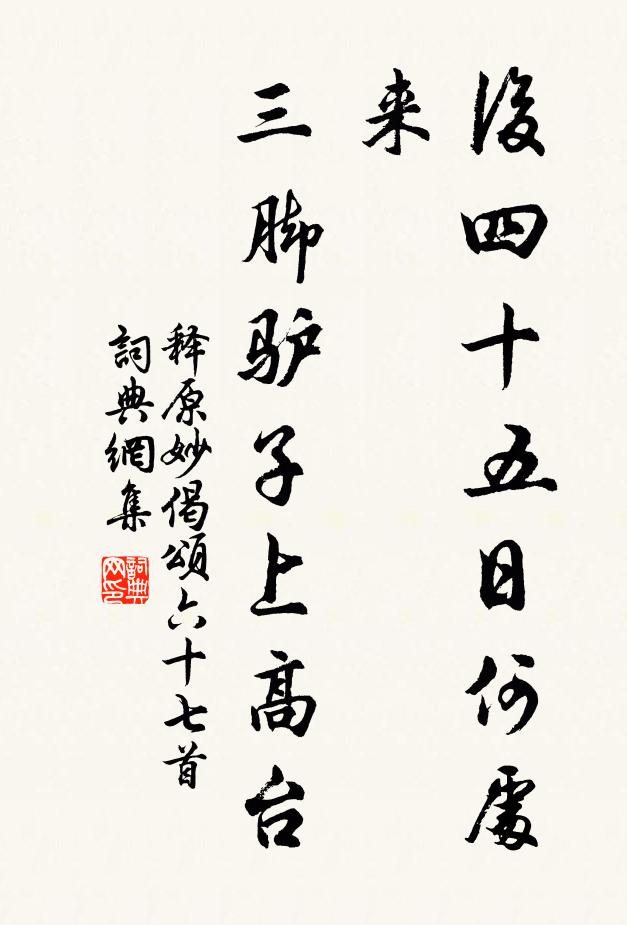 後四十五日何處
来
三脚驴子上高台
释原妙偈頌六十七首
詞典網集
詞典
网印